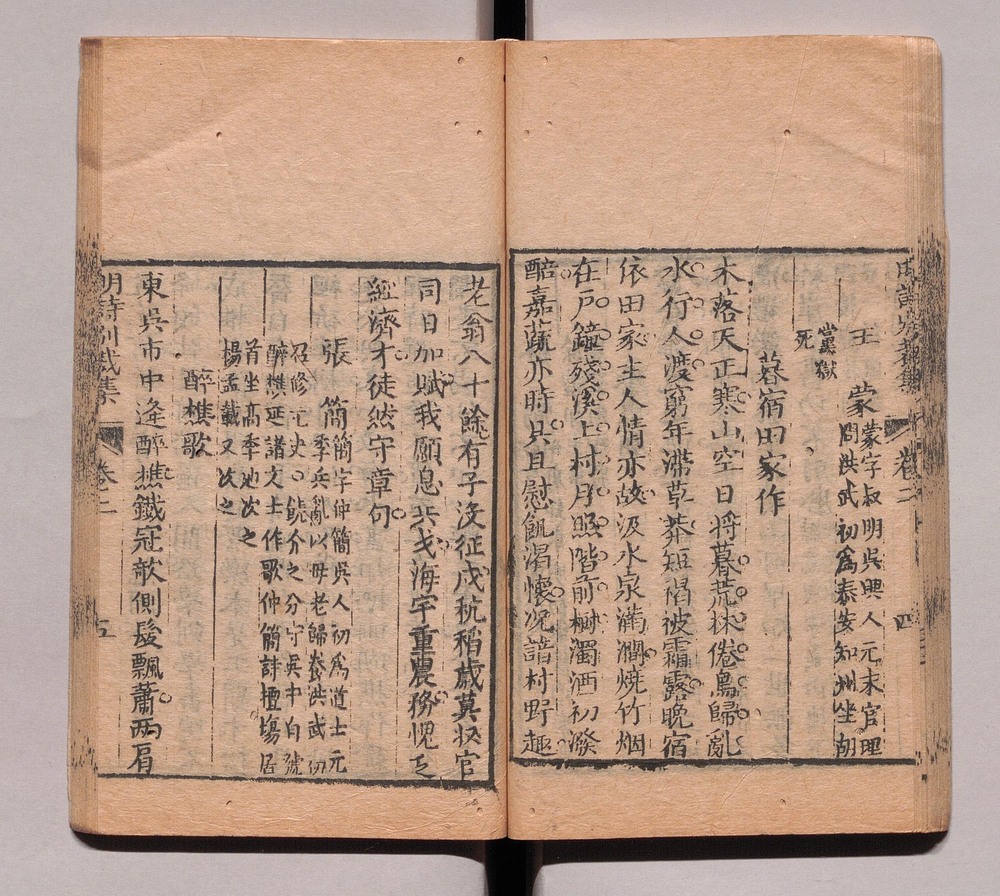 王　蒙 蒙字叔明吳興人元末官理
問洪武初爲泰安知州坐胡
黨獄
死
暮宿田家作
木落天正寒山空日將暮荒林倦鳥歸亂
水行人渡窮年滯草莽短褐被霜露晚宿
依田家主人情亦故汲水泉滿澗燒竹烟
在戶鐘殘溪上村月照階前樹濁酒初潑
醅嘉蔬亦時具且慰飢渴懷况諳村野趣
卷二
四
老翁八十餘有子没征戍秔稻歲莫收官
同日加賦我願息兵戈海宇重農務愧乏
經濟才徒然守章句
張　簡 簡字仲簡吳人初爲道士元
季兵亂以母老歸養洪武初
召修元史○饒介之分守吳中自號
醉樵延諸文士作歌仲簡詩擅塲居
首坐高季迪次之
楊孟載又次之
醉樵歌
東吳市中逢醉樵鐵冠欹側髮飄蕭兩肩
明詩别裁集
卷二
五